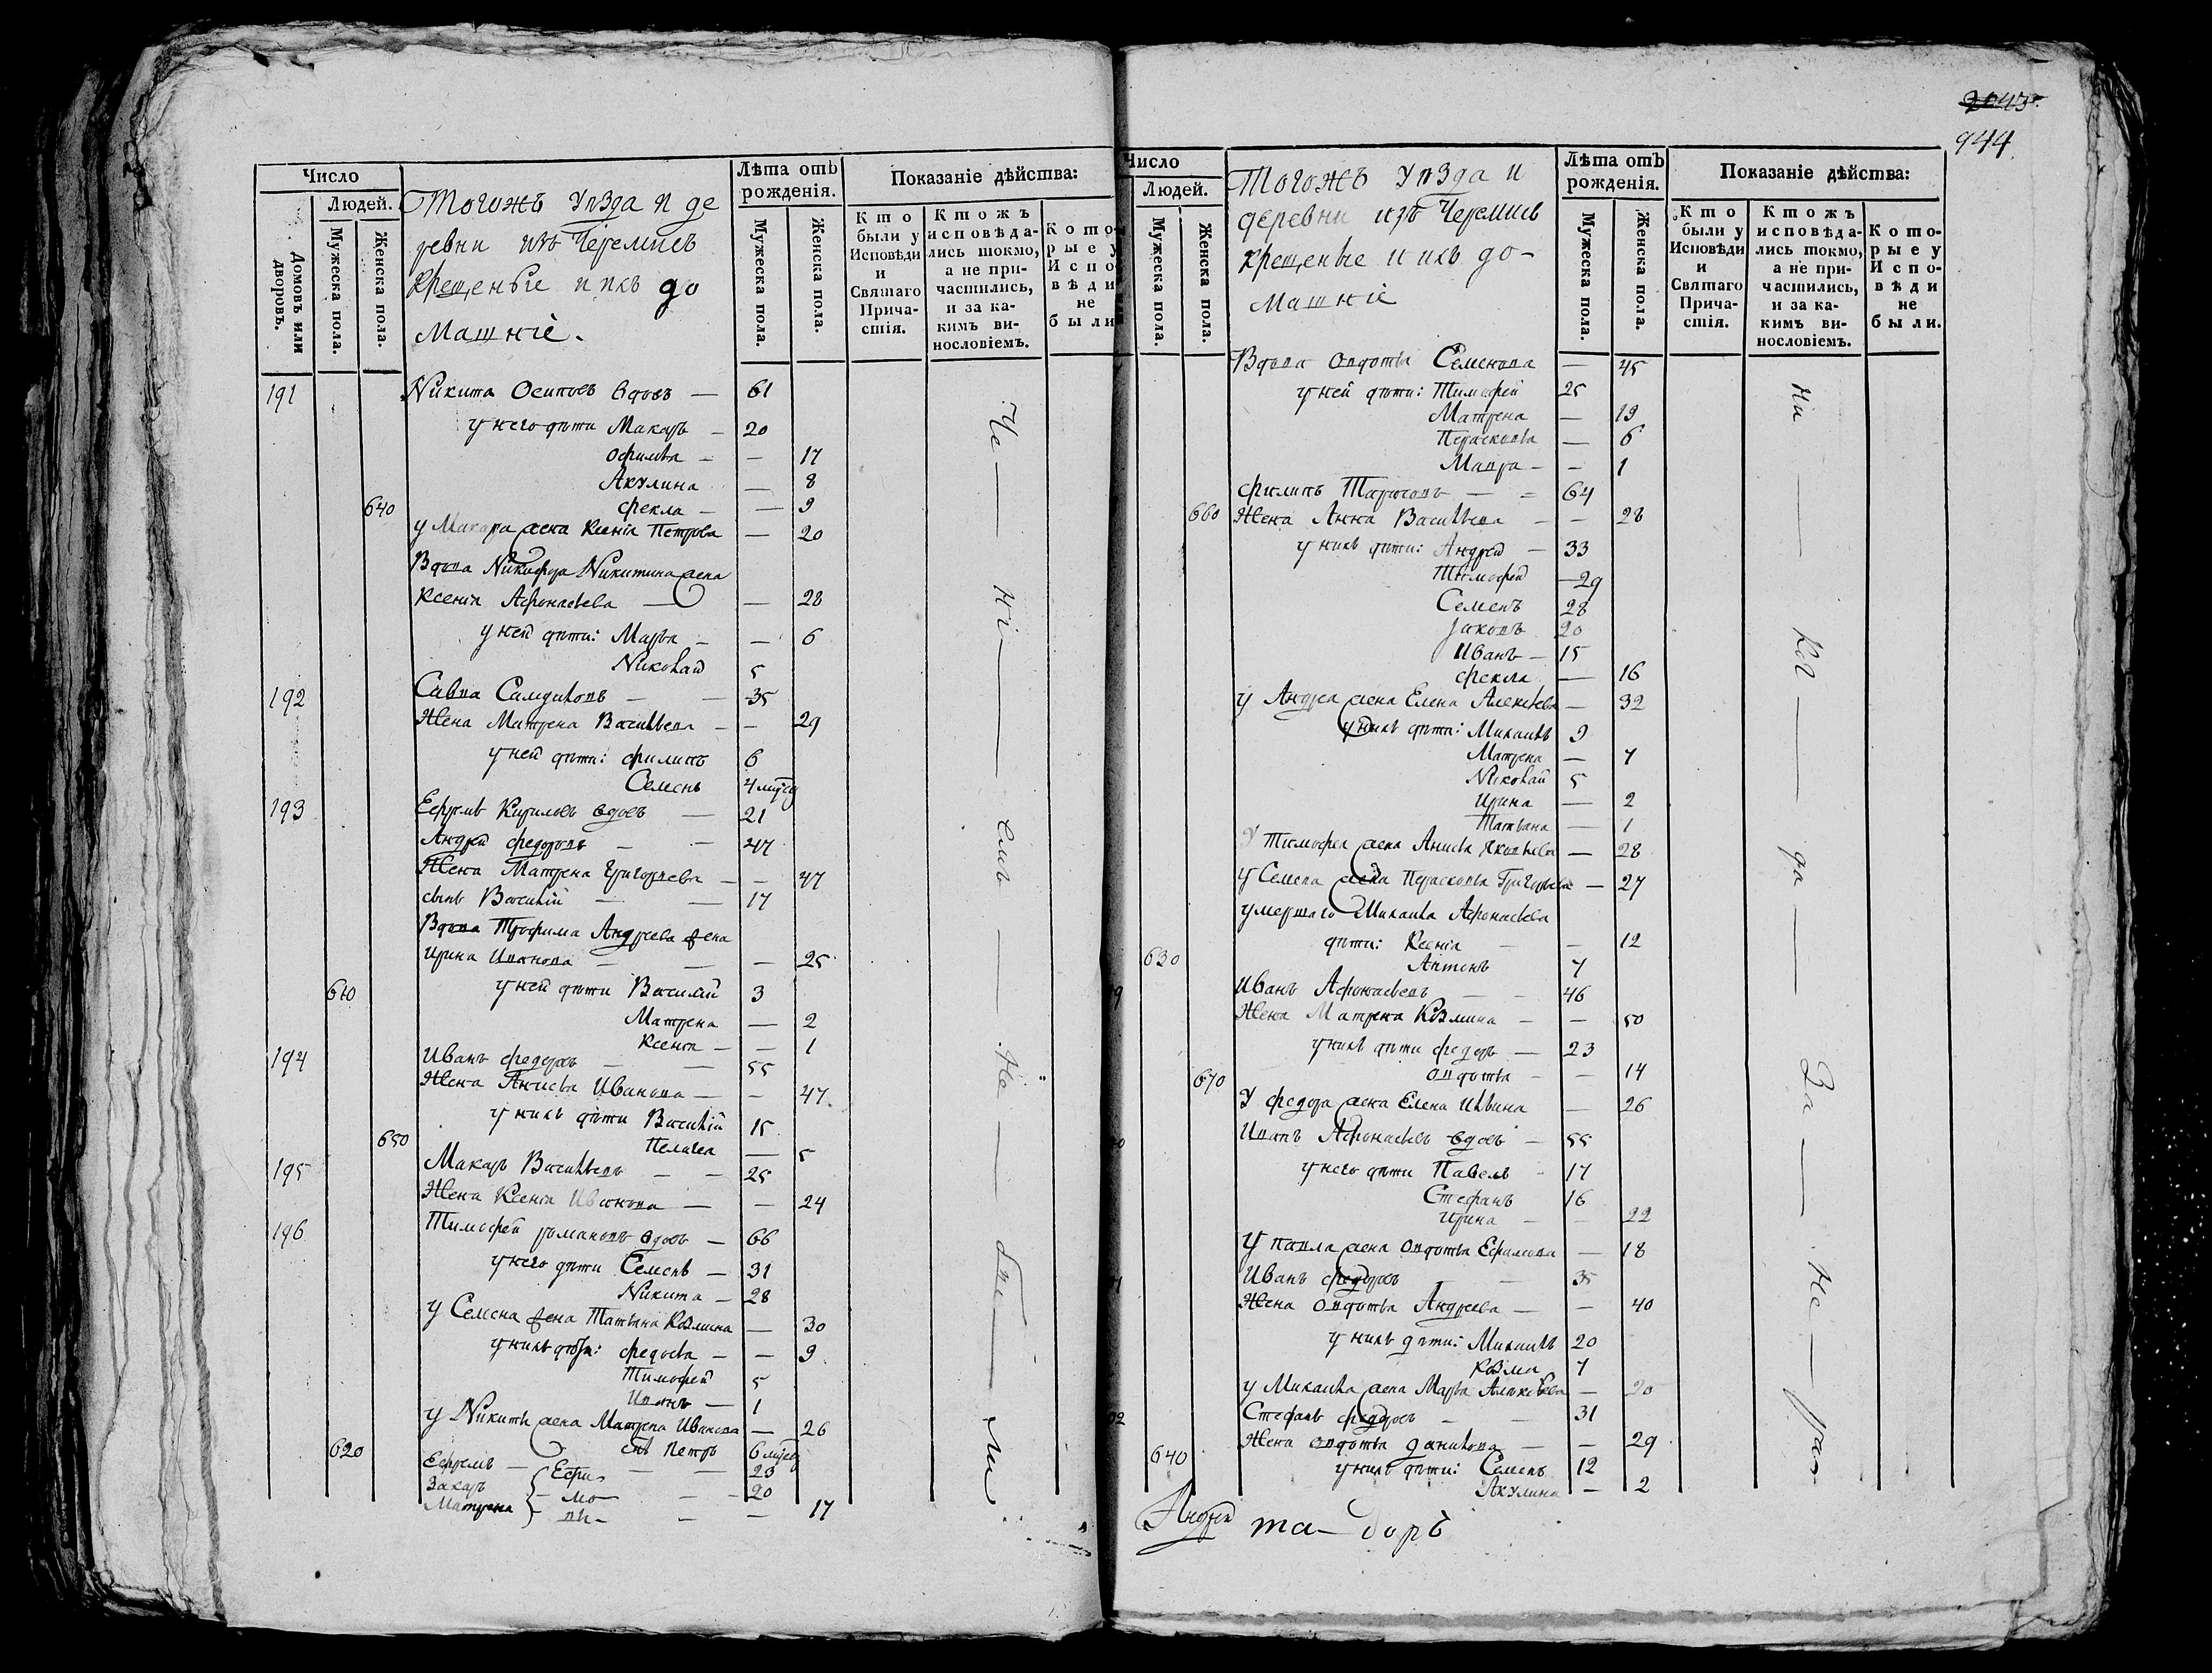 Число
Людей.
Домовъ или дворовъ.
Мужеска пола.
Женска пола.
Тогожъ уѣзда и де
ревни изъ Черемисъ
крещеные и ихъ до
машніе.
Лѣта отъ рожденія.
Мужеска пола.
Женска пола.
Показаніе дѣйства:
Кто были у Исповѣди и Святаго Причастія.
Ктожъ исповѣдались токмо, а не причастились, и за какимъ винословіемъ.
Которые у Исповѣди не были
191 Никита Осиповъ вдовъ — 61
у него дѣти Макаръ — 20
Офимья — — 17
Акулина — 8
640 Фекла — — 9
у Макара жена Ксенія Петрова — 20
Вдова Никифора Никитина жена
Ксенія Афонасьева — — 28
у ней дѣти: Марья — — 6
Николай 5
192 Савва Самуиловъ — — 35
Жена Матрена Васильева — — 29
у ней дѣти: Филипъ 6
Семенъ 4 мцсы
193 Ефремъ Кириловъ вдовъ — 21
Андрей Федоровъ — — 47
Жена Матрена Григорьева — — 47
сынъ Василій — — 17
Вдова Трофима Андреева жена
Ирина Иванова — — — 25
610 у ней дѣти Василій 3
Матрена — 2
Ксенія — — 1
194 Иванъ Федоровъ — — 55
Жена Анисья Иванова — — 47
у нихъ дѣти Василій 15
650 Пелагея — 5
195 Макаръ Васильевъ — — 25
Жена Ксенія Иванова — — 24
196 Тимофей Романовъ вдовъ — 66
у него дѣти Семенъ — 31
Никита — 28
у Семена жена Татьяна Козмина — 30
у нихъ дѣти: Федосья — — 9
Тимофей 5
Иванъ — 1
у Никиты жена Матрена Иванова — 26
620 сынъ Петръ 6 мцсы
Ефремъ — Ефи- — — 23
Захаръ — мо- — — 20
Матрена — вы- — — 17
2043
944
Число
Людей.
Мужеска пола.
Женска пола.
Тогожъ уѣзда и
деревни изъ Черемисъ
крещеные и ихъ до-
машніе
Лѣта отъ рожденія.
Мужеска пола.
Женска пола.
Показаніе дѣйства:
Кто были у Исповѣди и Святаго Причастія.
Ктожъ исповѣдались токмо, а не причастились, и за какимъ винословіемъ.
Которые у Исповѣди не были.
Вдова Овдотья Семенова — 45
у ней дѣти: Тимофей 25
Матрена — 19
Перасковья — 6
Мавра — — 1
Филипъ — = 64
660 Жена Анна Васильева — — 28
у нихъ дѣти: Андрей — 33
Тимофей — 29
Семенъ 28
Яковъ 20
Иванъ — 15
Фекла — 16
у Андрея жена Елена Алексѣева — 32
у нихъ дѣти: Михаилъ 9
Матрена — 7
Николай 5
Ирина — 2
Татьяна — 1
У Тимофея жена Анисья Яковлева — 28
у Семена жена Перасковья Григорьева — 27
умершаго Михаила Афонасьева
дѣти: Ксенія — — 12
630 Антонъ 7
Иванъ Афонасьевъ — — 46
Жена Матрена Козмина — — 50
у нихъ дѣти Федоръ — 23
670 Овдотья — — 14
У Федора жена Елена Ильина — 26
Иванъ Афонасьевъ вдовъ — 55
у него дѣти Павелъ 17
Стефанъ 16
Ирина — — 22
у Павла жена Овдотья Ефимова — 18
Иванъ Федоровъ — 35
Жена Овдотья Андреева — — 40
у нихъ дѣти: Михаилъ 20
Козма 7
у Михаила жена Марья Алексѣева — 20
Стефанъ Федоровъ — — 31
Жена Овдотья Данилова — — 29
640 у нихъ дѣти: Семенъ 12
Акулина — 2
Андрей та- воръ